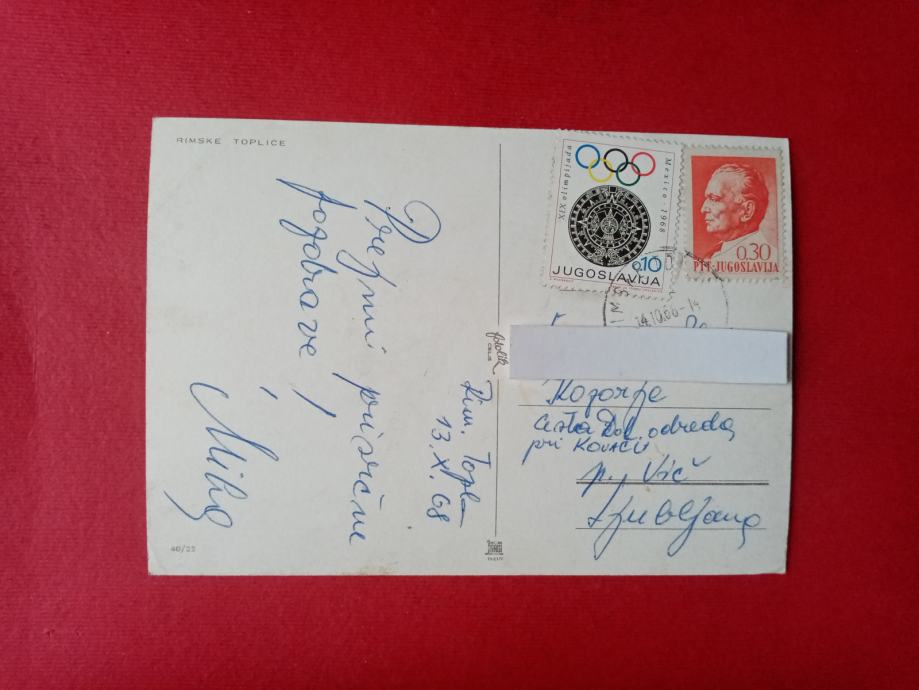 RIMSKE TOPLICE
Prejmi prisrčne
pozdrave!
Rim. Topl.
13. XI. 68
XIX olimpijada
Mexico - 1968
0.10
JUGOSLAVIJA
0.30
PTT JUGOSLAVIJA
14.10.68-14
fotolik
CELJE
Kozarje
Cesta Dol. odreda
pri KOVAČU
p. Vič
Ljubljana
40/22